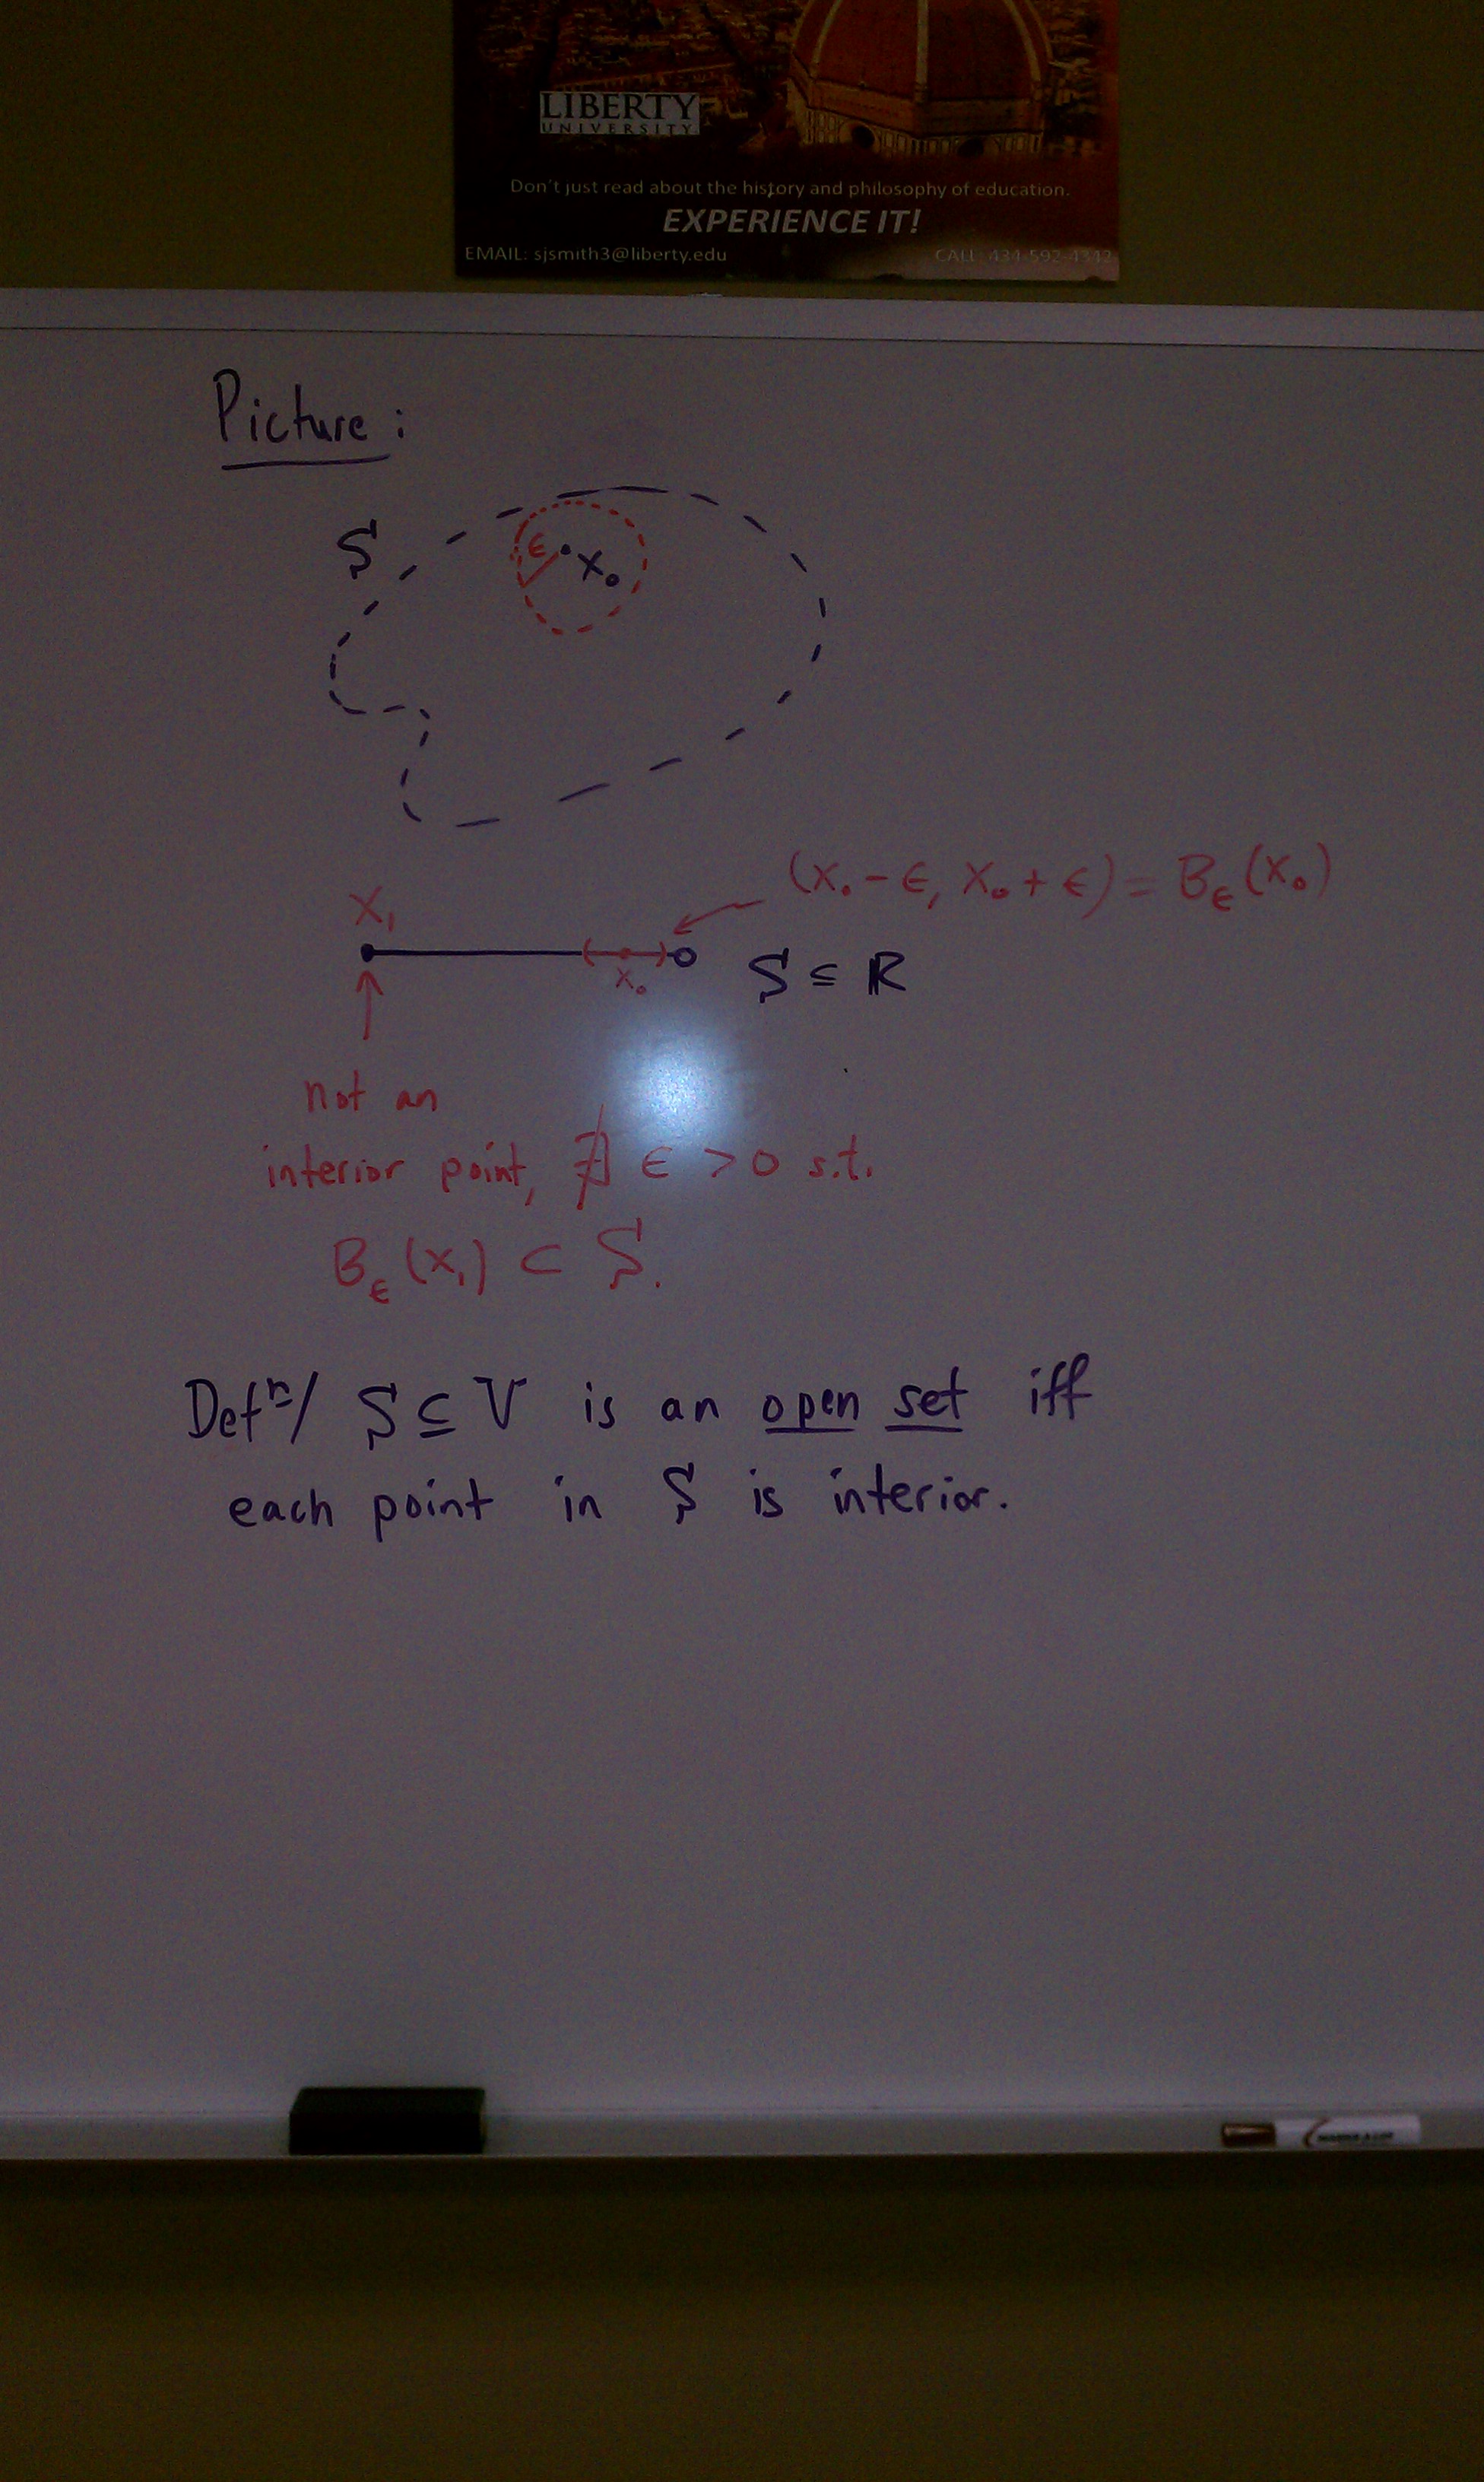 LIBERTY
UNIVERSITY
Don't just read about the history and philosophy of education.
EXPERIENCE IT!
EMAIL: sjsmith3@liberty.edu
CALL 434-592-4342
Picture:
S
ϵ
x₀
(x₀-ϵ, x₀+ϵ) = B_ϵ(x₀)
x₁
x₀
S ⊆ ℝ
not an
interior point, ∄ ϵ > 0 s.t.
B_ϵ(x₁) ⊂ S.
Defⁿ/ S ⊆ V is an open set iff
each point in S is interior.